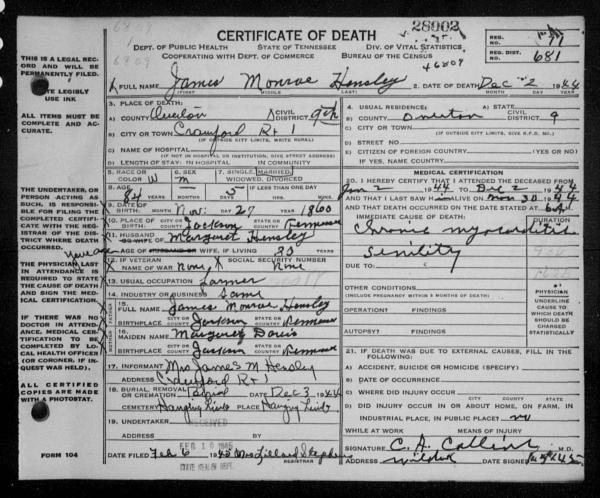 28902
CERTIFICATE OF DEATH
6809
6809
DEPT. OF PUBLIC HEALTH STATE OF TENNESSEE DIV. OF VITAL STATISTICS
COOPERATING WITH DEPT. OF COMMERCE BUREAU OF THE CENSUS
46809
REG. NO. 77
REG. DIST. 681
THIS IS A LEGAL RECORD AND WILL BE PERMANENTLY FILED.
WRITE LEGIBLY
USE INK
ALL ITEMS MUST BE COMPLETE AND ACCURATE.
THE UNDERTAKER, OR PERSON ACTING AS SUCH, IS RESPONSIBLE FOR FILING THE COMPLETED CERTIFICATE WITH THE REGISTRAR OF THE DISTRICT WHERE DEATH OCCURRED.
THE PHYSICIAN LAST IN ATTENDANCE IS REQUIRED TO STATE THE CAUSE OF DEATH AND SIGN THE MEDICAL CERTIFICATION.
IF THERE WAS NO DOCTOR IN ATTENDANCE, MEDICAL CERTIFICATION TO BE COMPLETED BY LOCAL HEALTH OFFICER (OR CORONER, IF INQUEST WAS HELD).
ALL CERTIFIED COPIES ARE MADE WITH A PHOTOSTAT.
FORM 104
1. FULL NAME James Monroe Hensley
(FIRST) (MIDDLE) (LAST)
2. DATE OF DEATH Dec 2 1944
MONTH DAY YEAR
3. PLACE OF DEATH:
A. COUNTY Overton CIVIL DISTRICT 9th
B. CITY OR TOWN Crawford Rt 1
(IF OUTSIDE CITY LIMITS, WRITE RURAL)
C. NAME OF HOSPITAL
(IF NOT IN HOSPITAL OR INSTITUTION, GIVE STREET ADDRESS)
D. LENGTH OF STAY: IN HOSPITAL IN COMMUNITY
4. USUAL RESIDENCE: A. STATE
B. COUNTY Overton CIVIL DISTRICT 9
C. CITY OR TOWN
(IF OUTSIDE CITY LIMITS, GIVE R.F.D. NO.)
D. STREET NO.
E. CITIZEN OF FOREIGN COUNTRY (YES OR NO)
IF YES, NAME COUNTRY
5. RACE OR COLOR W
6. SEX M
7. SINGLE, MARRIED, WIDOWED, DIVORCED
8. AGE 84 YEARS MONTHS 5 DAYS IF LESS THAN ONE DAY HRS. MIN.
9. DATE OF BIRTH: Nov. 27 1860
MONTH DAY YEAR
10. PLACE OF BIRTH CITY OR COUNTY Jackson STATE OR COUNTRY Tennessee
11. HUSBAND OR WIFE OF Margaret Hensley
AGE OF HUSBAND OR WIFE, IF LIVING YEARS
12. IF VETERAN NAME OF WAR None SOCIAL SECURITY NUMBER None
13. USUAL OCCUPATION Farmer
14. INDUSTRY OR BUSINESS Same
15. FULL NAME James Monroe Hensley
BIRTHPLACE CITY OR COUNTY Jackson STATE OR COUNTRY Tennessee
16. MAIDEN NAME Margaret Davis
BIRTHPLACE CITY OR COUNTY Jackson STATE OR COUNTRY Tennessee
17. INFORMANT Mrs James M Hensley
ADDRESS Crawford Rt 1
18. BURIAL, REMOVAL OR CREMATION Burial DATE Dec 3 1944
CEMETERY Hanging Limb PLACE Hanging Limb
19. UNDERTAKER
ADDRESS
RECEIVED
FEB 10 1945
STATE HEALTH DEPT.
DATE FILED Feb 6 1945 Mrs Lillard Stephens
REGISTRAR
MEDICAL CERTIFICATION
20. I HEREBY CERTIFY THAT I ATTENDED THE DECEASED FROM
Jan 2 1944 TO Dec 2 1944
AND THAT I LAST SAW HIM LIVE ON Nov 30 1944
AND THAT DEATH OCCURRED ON THE DATE STATED AT M.
IMMEDIATE CAUSE OF DEATH: DURATION
Chronic myocarditis
Senility
DUE TO:
OTHER CONDITIONS:
(INCLUDE PREGNANCY WITHIN 3 MONTHS OF DEATH)
OPERATION? FINDINGS
AUTOPSY? FINDINGS
PHYSICIAN UNDERLINE CAUSE TO WHICH DEATH SHOULD BE CHARGED STATISTICALLY
21. IF DEATH WAS DUE TO EXTERNAL CAUSES, FILL IN THE FOLLOWING:
A. ACCIDENT, SUICIDE OR HOMICIDE (SPECIFY)
B. DATE OF OCCURRENCE
C. WHERE DID INJURY OCCUR
D. DID INJURY OCCUR IN OR ABOUT HOME, ON FARM, IN INDUSTRIAL PLACE, IN PUBLIC PLACE? no
WHILE AT WORK MEANS OF INJURY
SIGNATURE C. A. Collins M.D.
ADDRESS Wilder 45